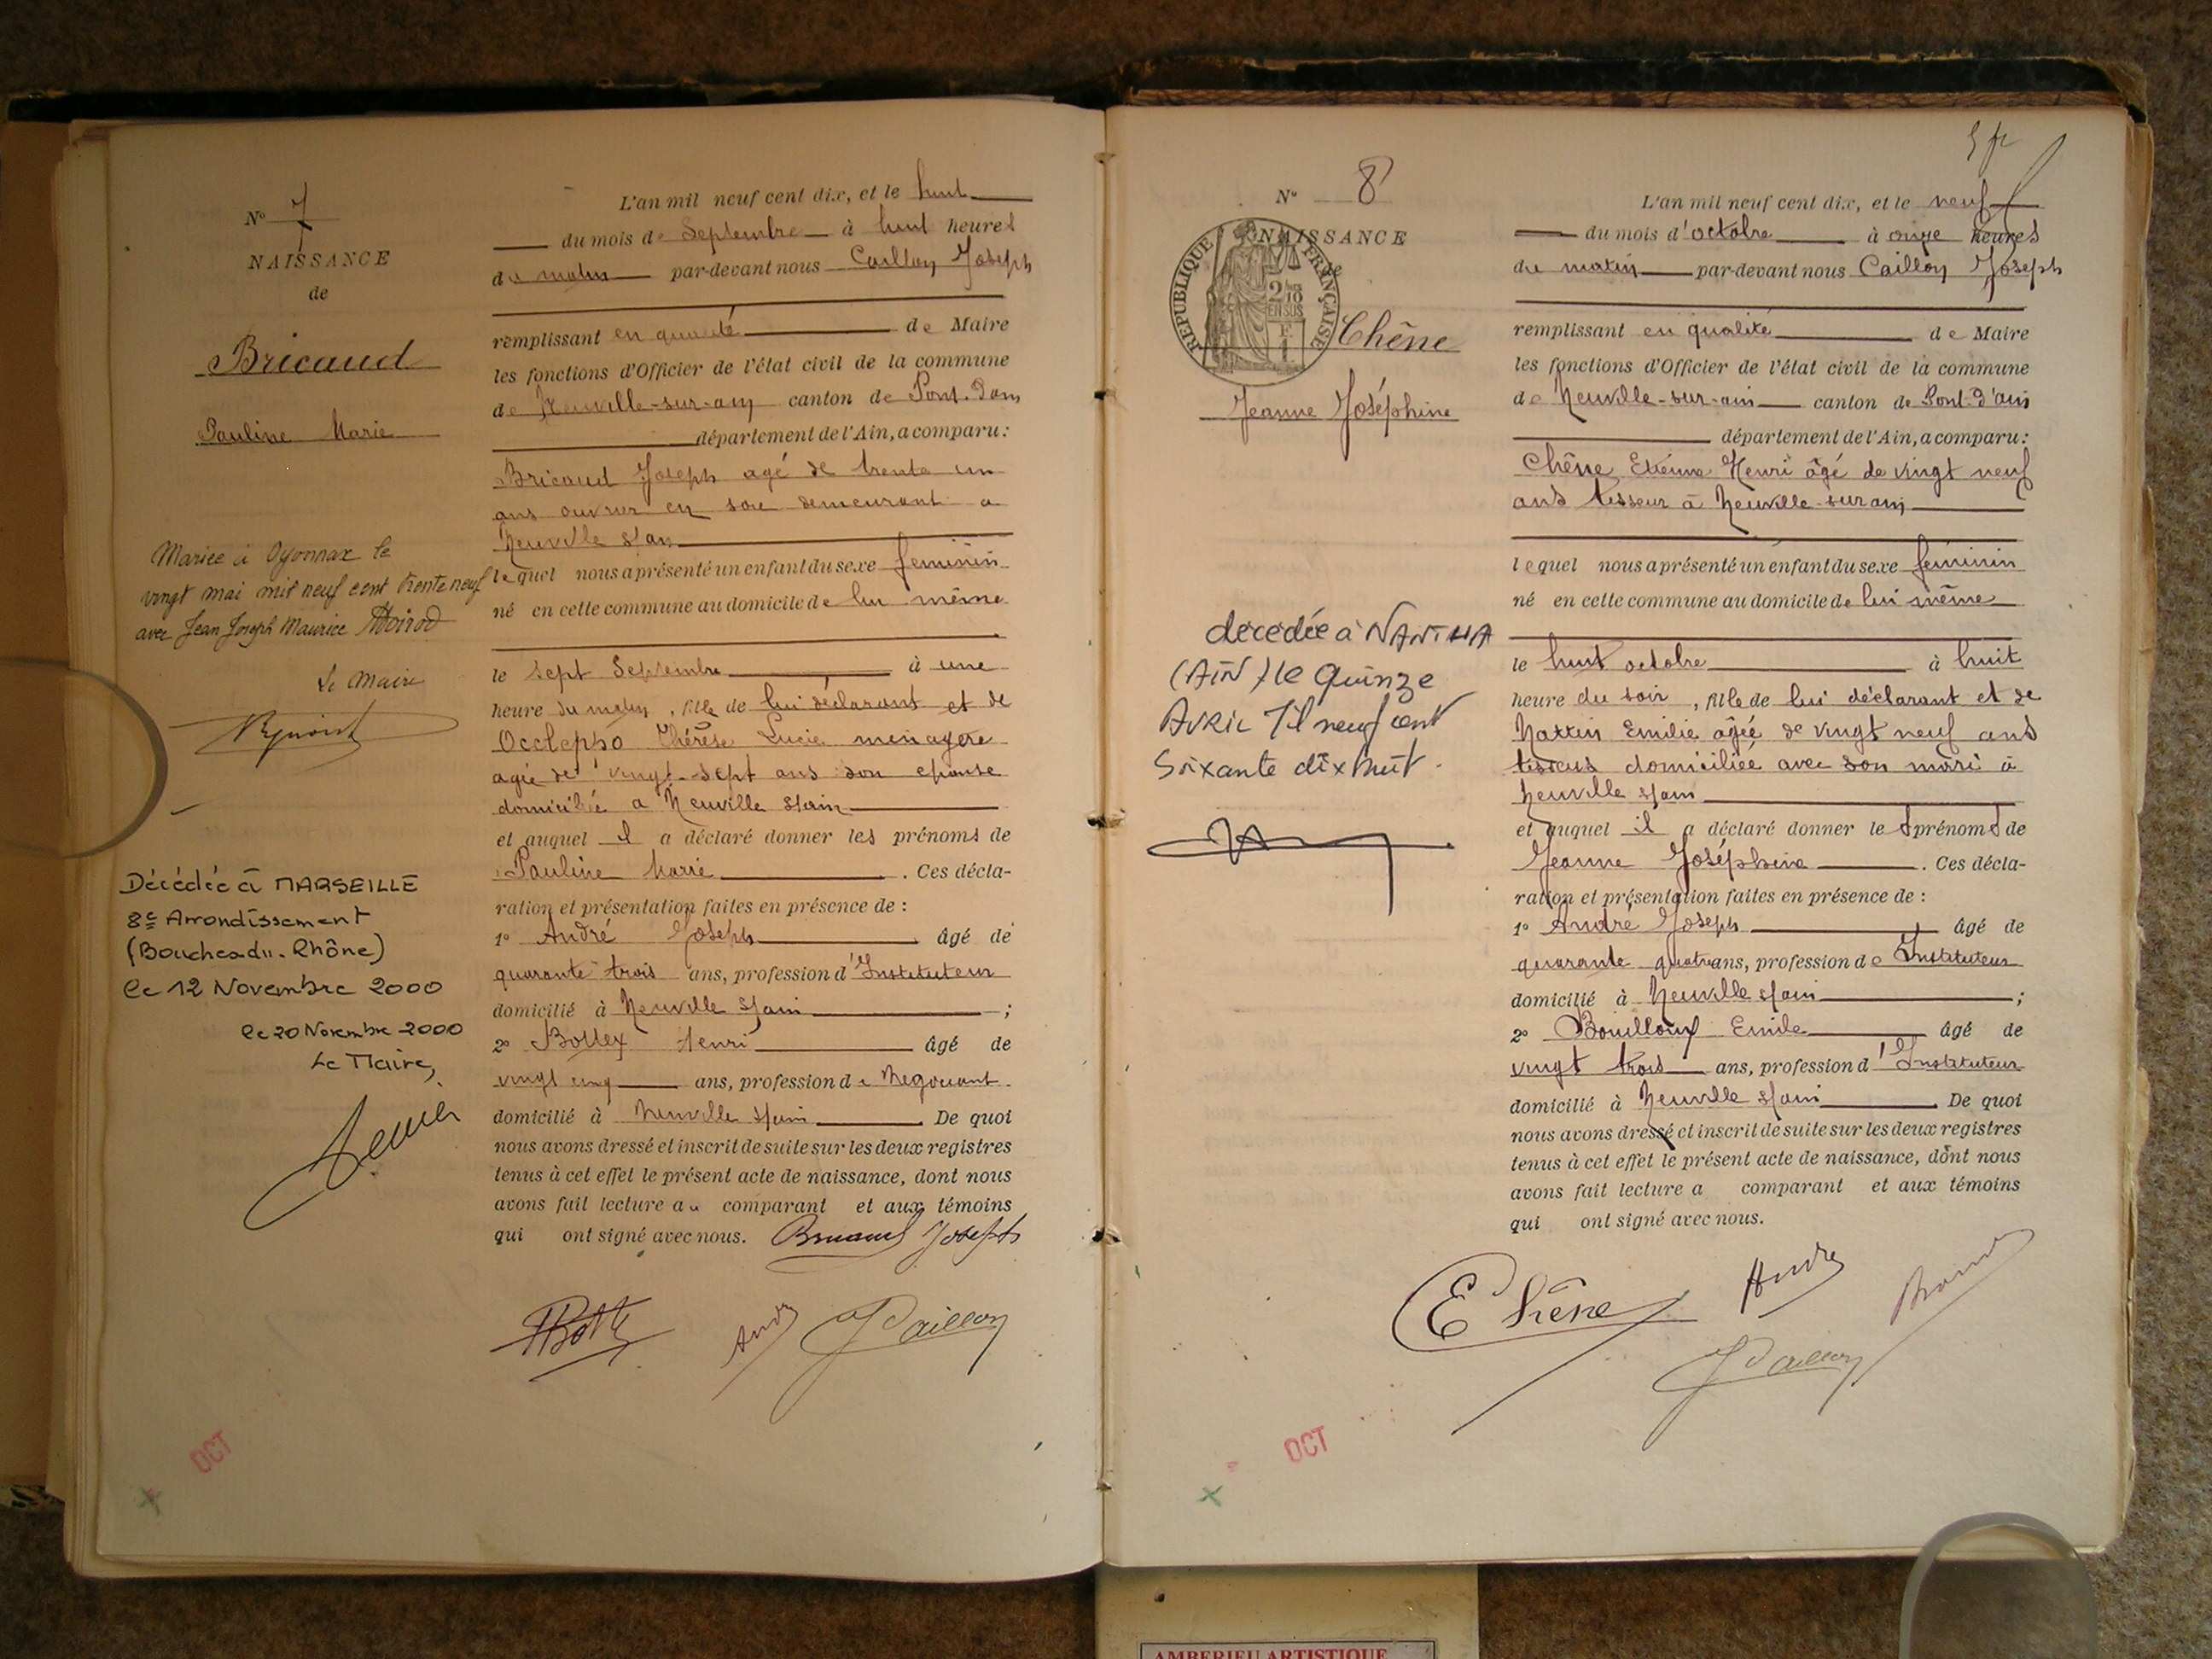 N° 7
NAISSANCE
de
Bricaud
Pauline Marie
Mariée à Oyonnax le
vingt mai mil neuf cent trente neuf
avec Jean Joseph Maurice
Le Maire
Décédée à MARSEILLE
8e Arrondissement
(Bouches du Rhône)
le 12 Novembre 2000
le 20 Novembre 2000
Le Maire,
OCT
L'an mil neuf cent dix, et le huit
du mois de Septembre à huit heures
du matin par-devant nous Caillon Joseph
remplissant en qualité de Maire
les fonctions d'Officier de l'état civil de la commune
de Neuville-sur-ain canton de Pont-Dain
département de l'Ain, a comparu:
Bricaud Joseph agé de trente un
ans ouvrier en soie demeurant a
Neuville s/ain
lequel nous a présenté un enfant du sexe feminin
né en cette commune au domicile de lui même
le sept Septembre à une
heure du matin, fille de lui déclarant et de
Occlepso Thérèse Lucie menagère
agée de vingt-sept ans son epouse
domiciliée a Neuville s/ain
et auquel il a déclaré donner les prénoms de
Pauline Marie. Ces décla-
ration et présentation faites en présence de :
1° André Joseph âgé de
quarante trois ans, profession d'Instituteur
domicilié à Neuville s/ain ;
2° Bollex Henri âgé de
vingt cinq ans, profession de Negociant
domicilié à Neuville s/ain. De quoi
nous avons dressé et inscrit de suite sur les deux registres
tenus à cet effet le présent acte de naissance, dont nous
avons fait lecture au comparant et aux témoins
qui ont signé avec nous. Bricaud Joseph
André J Caillon
5 fr
N° 8
NAISSANCE
de
REPUBLIQUE FRANÇAISE
2/10
EN SUS
F
1
Chêne
Jeanne Joséphine
décédée à NANTUA
(AIN) le quinze
AVRIL Mil neuf cent
Soixante dix huit.
OCT
L'an mil neuf cent dix, et le neuf
du mois d'octobre à onze heures
du matin par-devant nous Caillon Joseph
remplissant en qualité de Maire
les fonctions d'Officier de l'état civil de la commune
de Neuville-sur-ain canton de Pont-D'ain
département de l'Ain, a comparu:
Chêne Etienne Henri âgé de vingt neuf
ans tisseur à Neuville-sur ain
lequel nous a présenté un enfant du sexe féminin
né en cette commune au domicile de lui même
le huit octobre à huit
heure du soir, fille de lui déclarant et de
Martin Emilie âgée de vingt neuf ans
domiciliée avec son mari à
Neuville s/ain
et auquel il a déclaré donner les prénoms de
Jeanne Joséphine. Ces décla-
ration et présentation faites en présence de :
1° André Joseph âgé de
quarante quatre ans, profession de Instituteur
domicilié à Neuville s/ain ;
2° Bouilloux Emile âgé de
vingt trois ans, profession d'Instituteur
domicilié à Neuville s/ain. De quoi
nous avons dressé et inscrit de suite sur les deux registres
tenus à cet effet le présent acte de naissance, dont nous
avons fait lecture a comparant et aux témoins
qui ont signé avec nous.
E Chêne André
J Caillon
AMBERIEU ARTISTIQUE